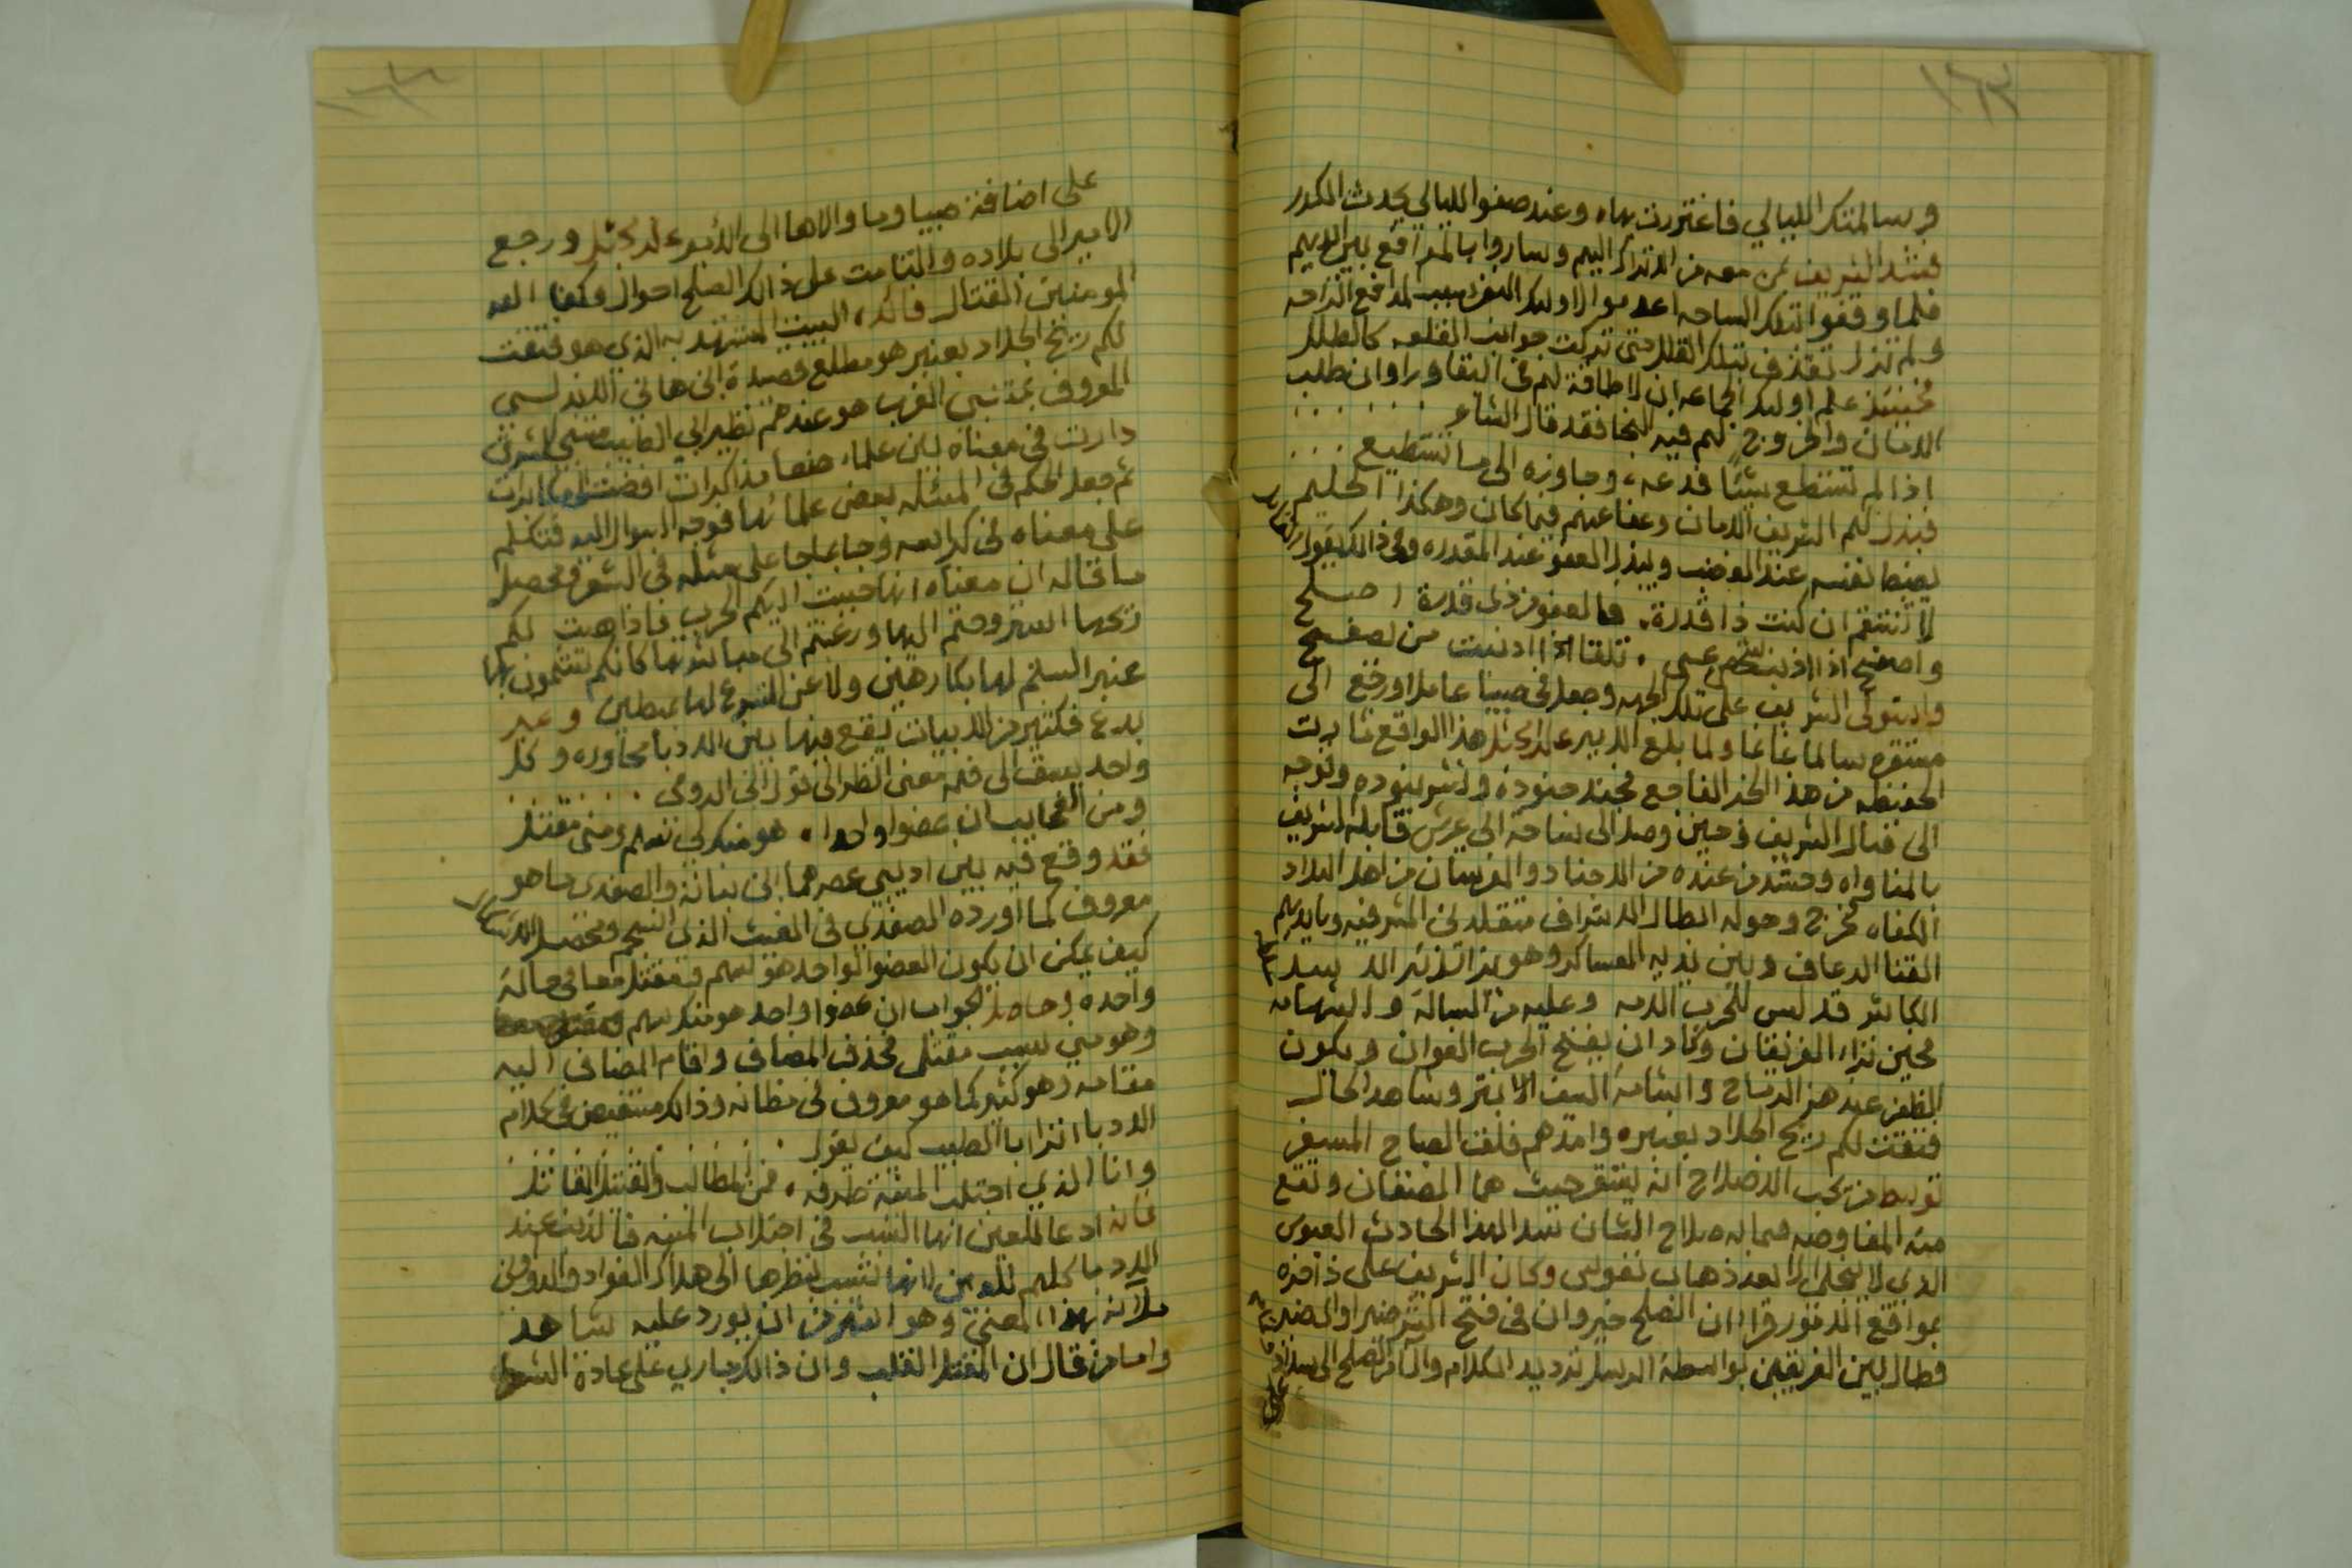 وسالمتك الليالي فاغتررت بها، وعند صفوا الليالي يحدث الكدر
فشد الشريف بمن معه من الاتراك اليهم وساروا بالمدافع بين ايديهم
فلما وقفوا بتلك الساحه اعدموا لاولئك النفر بسبب المدافع الراحه
ولم تزل تقذف بتلك القلل حتى تركت جوانب القلعه كالطلل
فحينئذ علم اولئك الجماعه ان لا طاقة لهم في البقا وراوا ان طلب
الامان والخروج لهم فيه النجا فقد قال الشاعر
اذا لم تستطع شيئا فدعه، وجاوزه الى ما تستطيع
فبذل لهم الشريف الامان وعفا عنهم فيما كان وهكذا الحليم
يضبط نفسه عند الغضب ويبذل العفو عند المقدره وفي ذالك يقول الشاعر
لا تنتقم ان كنت ذا قدرة، فالعفو من ذي قدرة اصلح
واصفح اذا اذنب خصم عسى، تلقا اذا اذنبت من يصفح
واستولى الشريف على تلك الجهه وجعل في صبيا عاملا ورجع الى
مستقره سالما غانما ولما بلغ الامير علي بن مجثل هذا الواقع ثارت
الحفيظه من هذا الخبر الفاجع فجند جنوده ونشر بنوده وتوجه
الى قتال الشريف وحين وصل الى ساحة ابي عريش قابله الشريف
بالمناواه وحشد من عنده من الاجناد والفرسان من اهل البلاد
الكفاه فخرج وحوله ابطال الاشراف متقلدين المشرفيه وبايديهم
القنا الرعاف وبين يديه العساكر وهو يزائر زئير الاسد
الكاشر قد لبس للحرب لامه وعليه من البساله والشهامه
فحين تراء الفريقان وكاد ان يفتح الحرب العوان ويكون
الظفر عند هز الرماح وابتسامة السيف الابتر وشاهد الحال
فتقت لكم ريح الجلاد بعنبره وامدهم فلق الصباح المسفر
توسط من يحب الاصلاح انه يستقر حيث هما المصنفان وتقع
منه المفاوضه فيما به صلاح الشان سدا لهذا الحادث العبوس
الذي لا ينجلي الا بعد ذهاب نفوس وكان الشريف على ذافره
بمواقع الامور فراا ان الصلح خير وان في فتح الشر ضير اوالضير
فطال بين الفريقين بواسطة الرسل ترديد الكلام وال امر الصلح الى سداد
على
على اضافة صبيا وما والاها الى الامير علي بن مجثل ورجع
الامير الى بلاده والتامت على ذالك الصلح احوال وكفا الله
المومنين القتال فائده، البيت المستشهد به الذي هو فتقت
لكم ريح الجلاد بعنبر هو مطلع قصيدة ابن هاني الاندلسي
المعروف بمتنبي الغرب هو عندهم نظير ابي الطيب متنبي الشرق
دارت في معناه بين علماء صنعا مذاكرات افضت الى مكابرات
ثم جعل الحكم في المسئله بعض علمائها فوجه السوال اليه فتكلم
على معناه في كراسه وجا بما جا على مثله في الشعر ومحصل
ما قاله ان معناه انها حببت اليكم الحرب فاذا هبت لكم
ريحها اهتزوجتم اليها ورغبتم الى مباشرتها كانكم تشمون بها
عنبر السلم لها بكارهين ولا عن التسرع لها مبطين و غير
بدع فكثير من الابيات يقع فيها بين الادبا محاوره وكل
واحد يسبق الى فهمه معنى انظر الى قول ابن الرومي
ومن العجايب ان عضوا واحدا، هو منك لي سهم ومني مقتل
فقد وقع فيه بين اديبي عصرهما ابن نباتة والصفدي ما هو
معروف كما اورده الصفدي في الغيث الذي انسجم ومحصل الاشكال
كيف يمكن ان يكون العضو الواحد هو سهم ومقتل معا في حالة
واحدة وحاصل الجواب ان عضوا واحد هو منك سهم
وهو مني سبب مقتل فحذف المضاف واقام المضاف اليه
مقامه وهو كثير كما هو معروف في مظانه وذالك مستفيض في كلام
الادبا انرا ابا الطيب كيف يقول
وانا الذي اجتلب المنية طرفه، فمن المطالب والقتيل القاتل
فانه ادعا للعين انها السبب في اجتلاب المنيه فالذنب عند
الادبا كلهم للعين لانها تسبب بنظرها الى هلاك الفواد والدواوين
ملآنه بهذا المعنى وهو اشهر من ان يورد عليه شاهد
واما من قال ان المقتل القلب وان ذالك جاري على عادة الشعراء